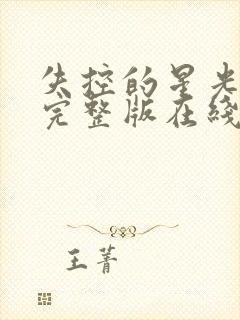 失控的星光
完整版在线
王菁